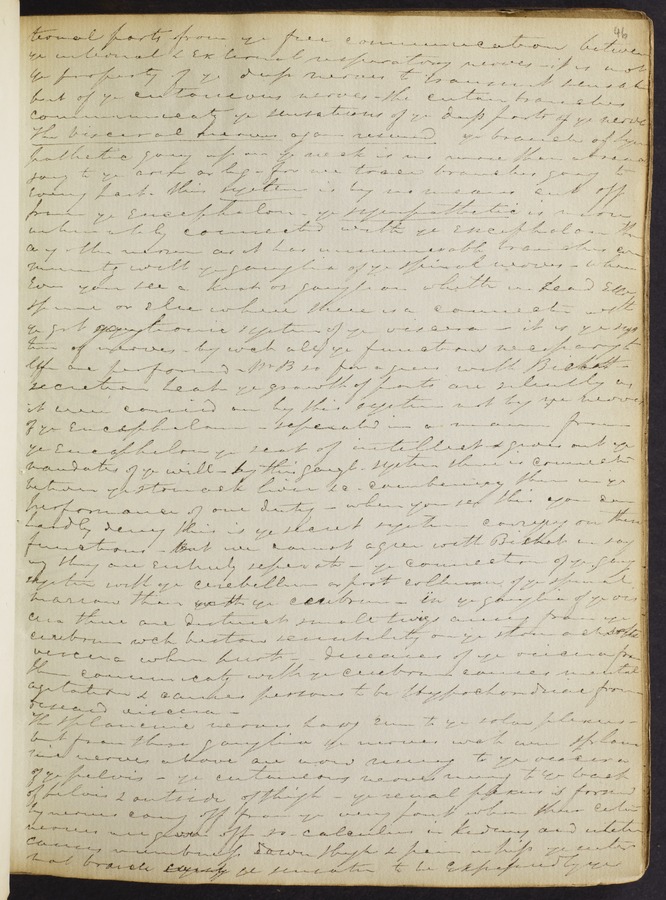 46
ternal parts from ye free communication between
ye internal & External respiratory nerves – it is not
ye property of ye deep nerves to transmit sensation
but of ye cutaneous nerves – the cutan branches
communicate ye sensations of ye deep parts of ye nerve
The visceral nerves again resumed ye branch of sym
pathetic going up on ye neck is no more than a branch
going to ye arm or leg – for we trace branches going to
every part. this system is by no means cut off
from ye Encephalon – ye sympathetic is more
intimately connected with ye encephalon than
any other nerve as it has innumerable branches com
municating with ye ganglia of ye spinal nerves – when
Ever you see a knot or ganglion whether in head
spine or else where there is a connection with
ye system of ye viscera – it is ye sys
tem of nerves by wch all ye functions necessary to
life are performed – Mr B so far agrees with Bichat –
secretion heat ye growth of parts are silently as
it were carried on by this system not by ye nerves
of ye Encephalon – seperated in a manner from
ye Encephalon ye seat of intellect & gives out ye
mandates of ye will – by this gangl. system there is connection
between ye stomach liver &c. combining them in ye
performance of one duty – when you see this you can
hardly deny this is ye secret system carrying on these
functions – But we cannot agree with Bichat in say
ing they are entirely seperate – ye connection of ye gang
system with ye cerebellum & post collumn of ye spinal
marrow then with ye cerebrum – in ye ganglia of ye vis
cera there are distinct small twigs coming from ye
cerebrum wch bestow sensibility on ye stomach & other
viscera when hurt – diseases of ye viscera from
communicatg with ye cerebrum causes mental
agitation & causes persons to be Hypochondriac from
diseased viscera –
The Splancnic nerves having run to ye solar plexus –
but from these ganglia ye nerves wch were Splanc
nic nerves above are now running to ye viscera
of ye pelvis – ye cutaneous nerves running to ye back
of pelvis & outside of thigh – ye renal plexus is formed
by nerves comg off from ye very point when these cutan
nerves are given off so calculus in kidney and ureter
causes numbness down thigh & pain in hip ye exter
nal branch ye sensation to be Expressed by ye